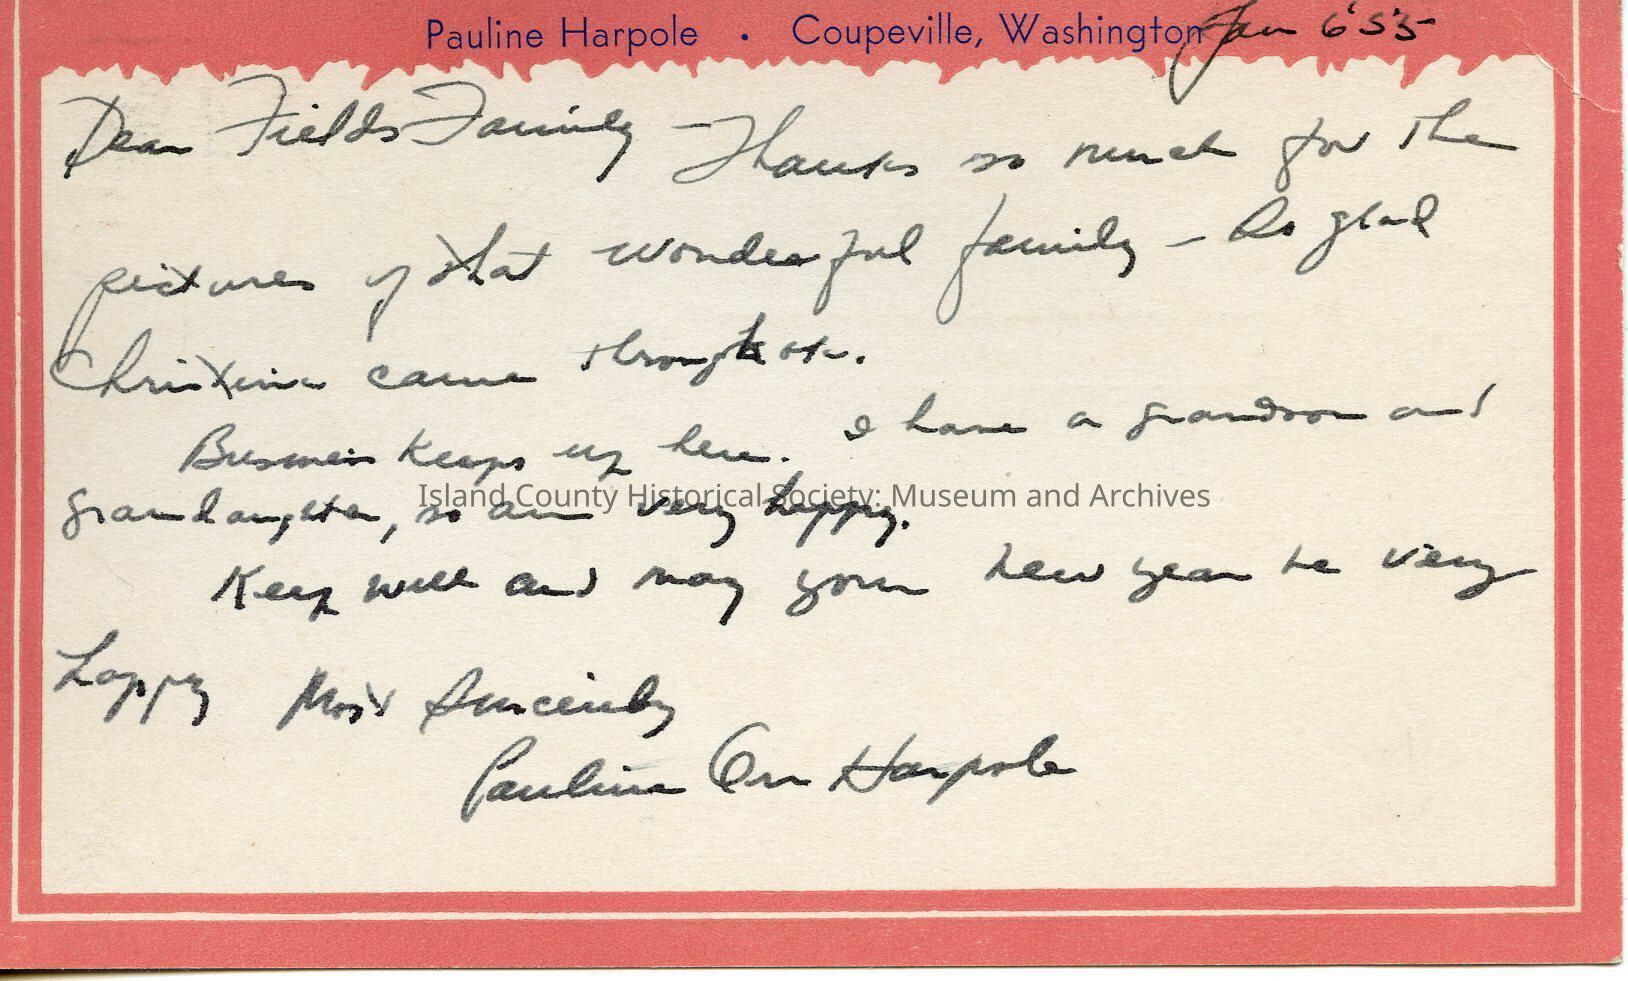 Pauline Harpole • Coupeville, Washington Jan 6 '53
Dear Fields Family - Thanks so much for the
pictures of that wonderful family - So glad
Christina came through ok.
Business keeps up here. I have a grandson and
grandaughter, so am very happy.
Island County Historical Society: Museum and Archives
Keep well and may your new year be very
happy Most Sincerely
Pauline Orr Harpole